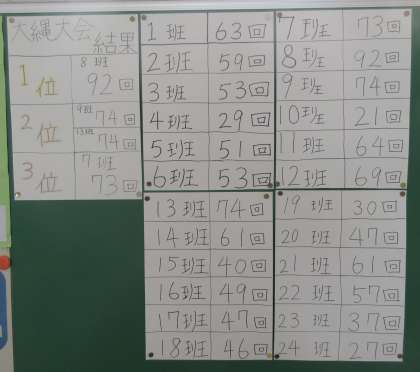 大縄大会
結果
1位 8班 92回
2位 9班 74回
13班 74回
3位 7班 73回
1班 63回
2班 59回
3班 53回
4班 29回
5班 51回
6班 53回
7班 73回
8班 92回
9班 74回
10班 21回
11班 64回
12班 69回
13班 74回
14班 61回
15班 40回
16班 49回
17班 47回
18班 46回
19班 30回
20班 47回
21班 61回
22班 57回
23班 37回
24班 27回